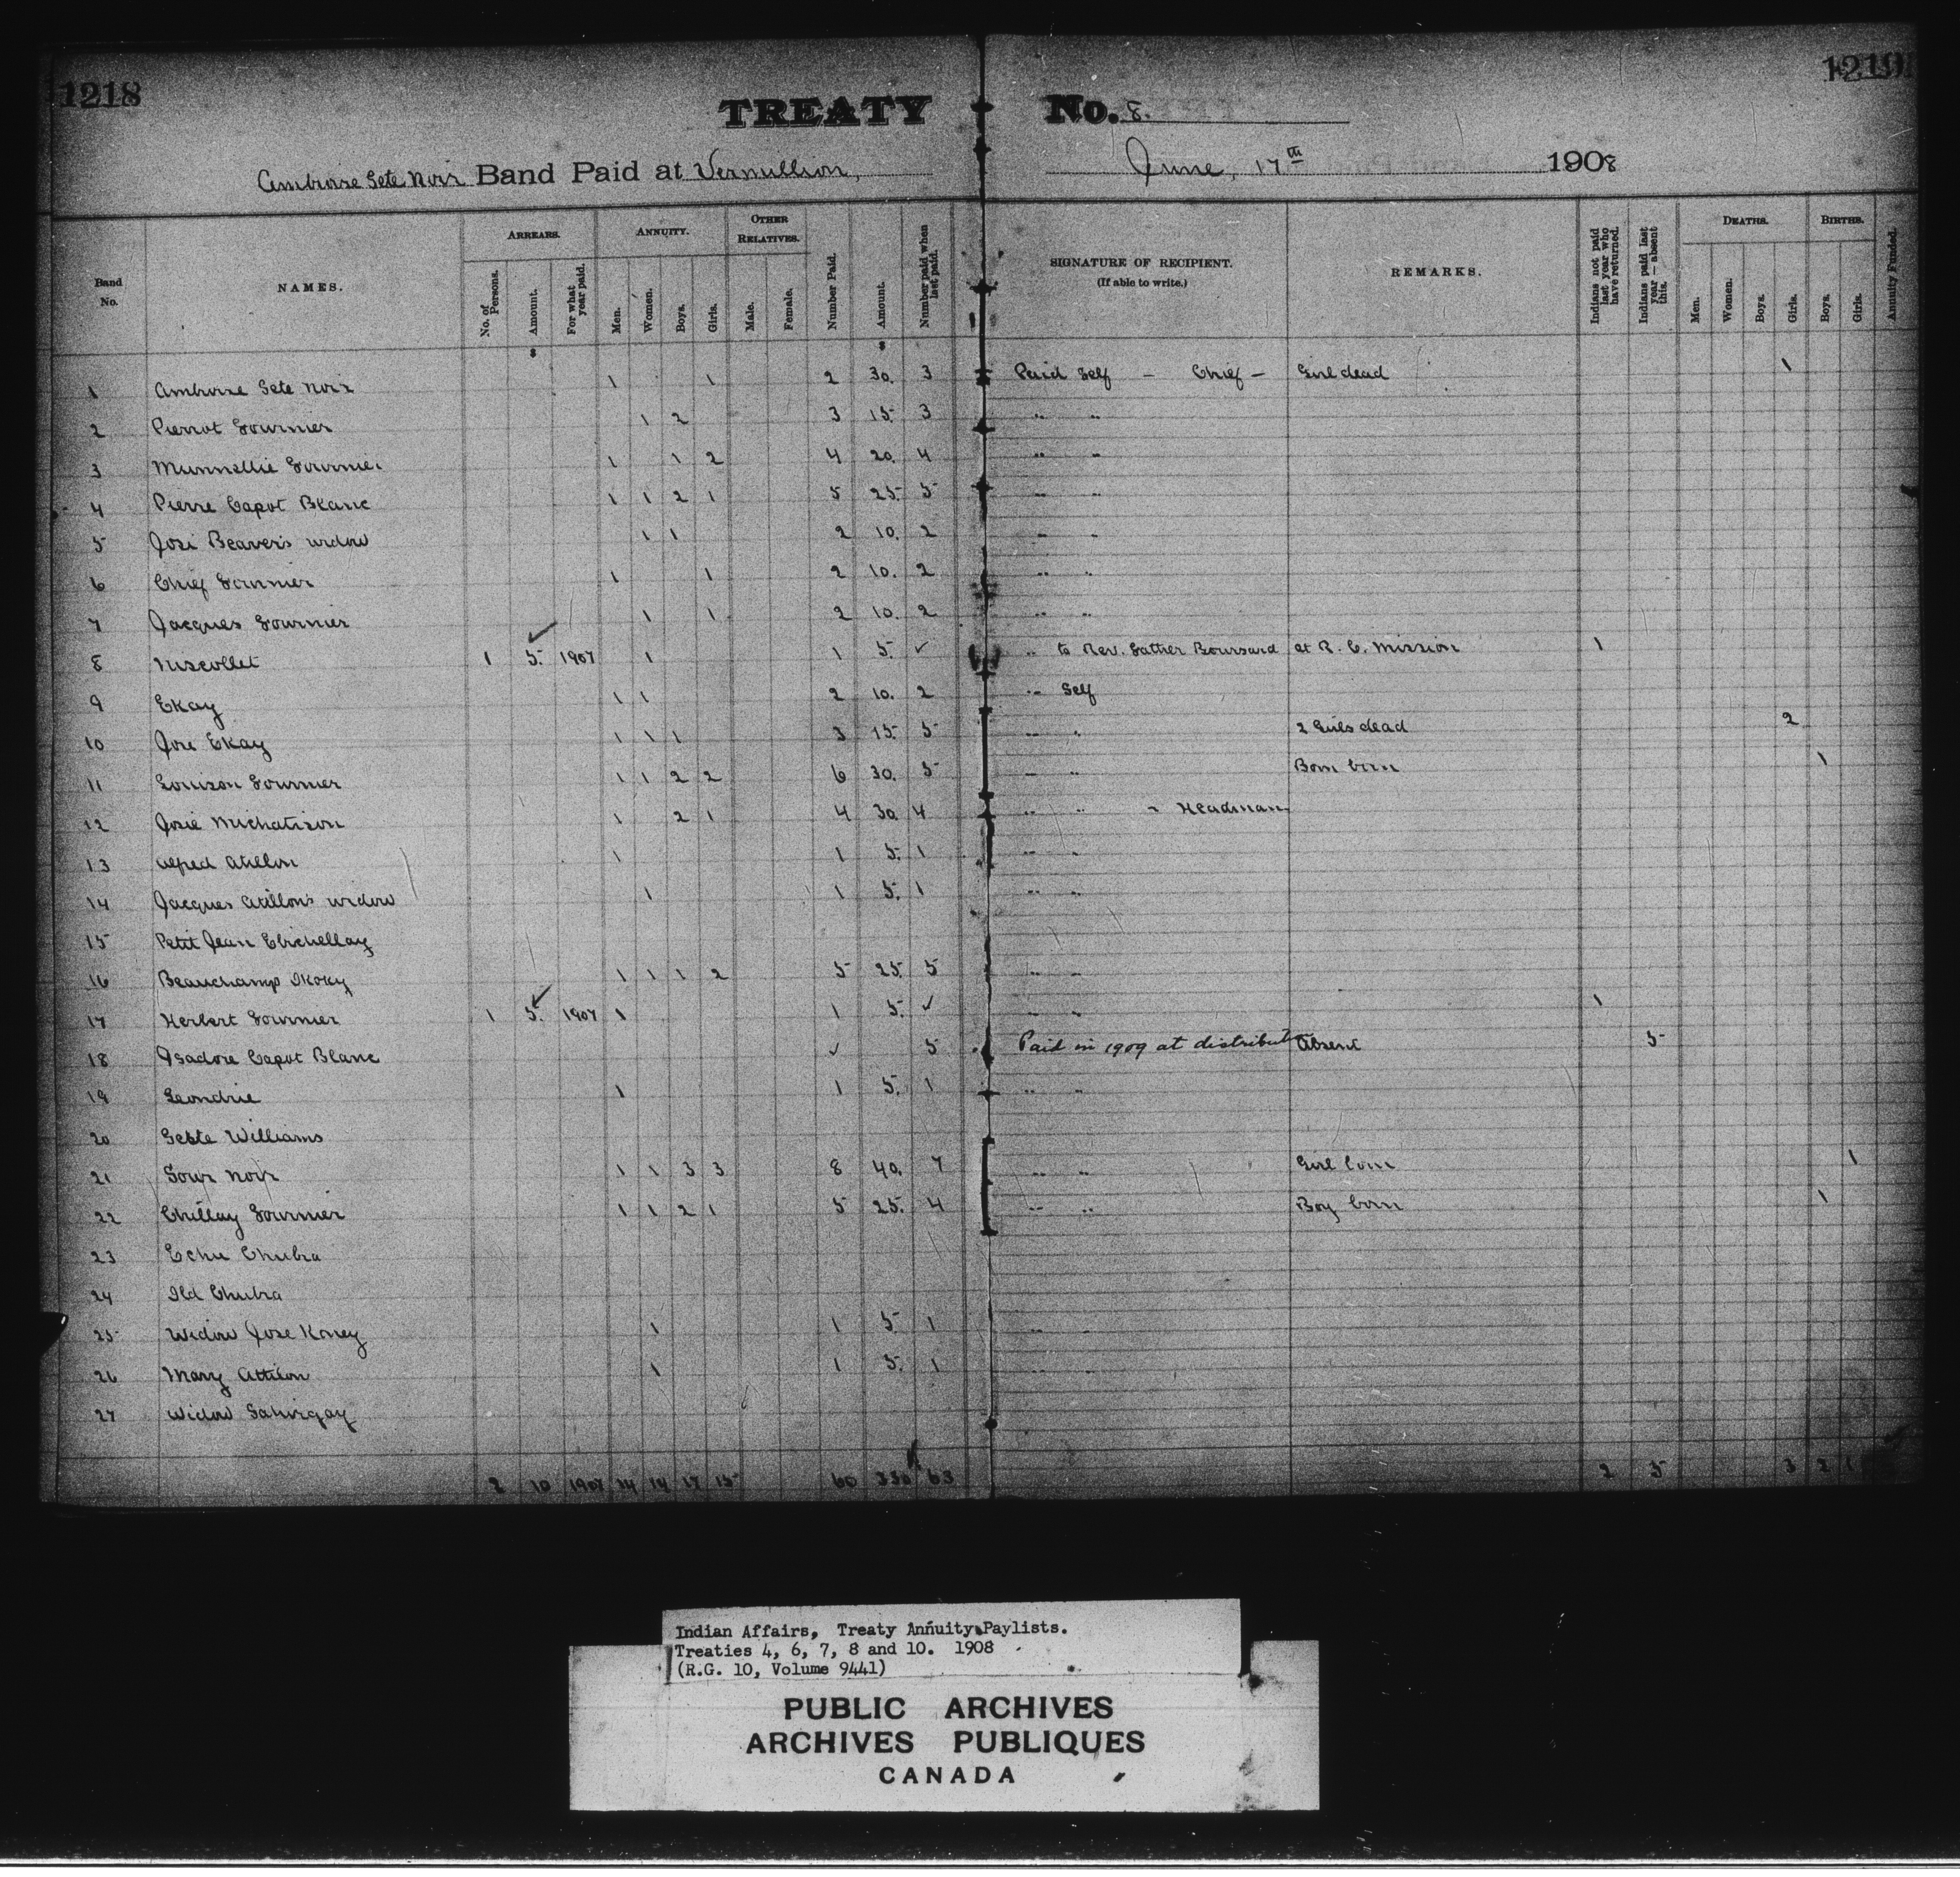 1218
1219
TREATY No. 8.
Ambroise Tete Noir Band Paid at Vermillion, June, 17th 1908
Band No.
NAMES.
ARREARS.
No. of Persons.
Amount.
For what year paid.
ANNUITY.
Men.
Women.
Boys.
Girls.
OTHER RELATIVES.
Male.
Female.
Number Paid.
Amount.
Number paid when last paid.
SIGNATURE OF RECIPIENT.
(If able to write.)
REMARKS.
Indians not paid last year who have returned.
Indians paid last year — absent this.
DEATHS.
Men.
Women.
Boys.
Girls.
BIRTHS.
Boys.
Girls.
Annuity Funded.
1 Ambroise Tete Noir 1 1 2 30. 3 Paid Self — Chief — Girl dead 1
2 Pierrot Fournier 1 2 3 15. 3 " "
3 Munnellie Fournier 1 1 2 4 20. 4 " "
4 Pierre Capot Blanc 1 1 2 1 5 25. 5 " "
5 Josi Beaver's widow 1 1 2 10. 2 " "
6 Chief Fournier 1 1 2 10. 2 " "
7 Jacques Fournier 1 1 2 10. 2 " "
8 Niscollet 1 5. 1907 1 1 5. ✓ " to Rev. Father Boursard at R. C. Mission 1
9 Ekay 1 1 2 10. 2 " Self
10 Jose Ekay 1 1 1 3 15. 5 " " 2 Girls dead 2
11 Louison Fournier 1 1 2 2 6 30. 5 " " Born born 1
12 Josie Michatison 1 2 1 4 30 4 " " - Headman
13 Alfred Atillon 1 1 5. 1 " "
14 Jacques Atillon's widow 1 1 5. 1 " "
15 Petit Jean
16 Beauchamp 1 1 1 2 5 25. 5 " "
17 Herbert Fournier 1 5. 1907 1 1 5. ✓ " " 1
18 Isadore Capot Blanc ✓ 5 Paid in 1909 at distribut Absent 5
19 Leondrie 1 1 5. 1 " "
20 Williams
21 Noir 1 1 3 3 8 40. 7 " " Girl born 1
22 Chillay Fournier 1 1 2 1 5 25. 4 " " Boy born 1
23 Echu Chubra
24 Old Chubra
25 Widow Jose Koney 1 1 5 1 " "
26 Mary Attilon 1 1 5. 1 " "
27 Widow
2 10 1907 14 14 17 15 60 330 63 2 5 3 2 1
Indian Affairs, Treaty Annuity Paylists.
Treaties 4, 6, 7, 8 and 10. 1908
(R.G. 10, Volume 9441)
PUBLIC ARCHIVES
ARCHIVES PUBLIQUES
CANADA